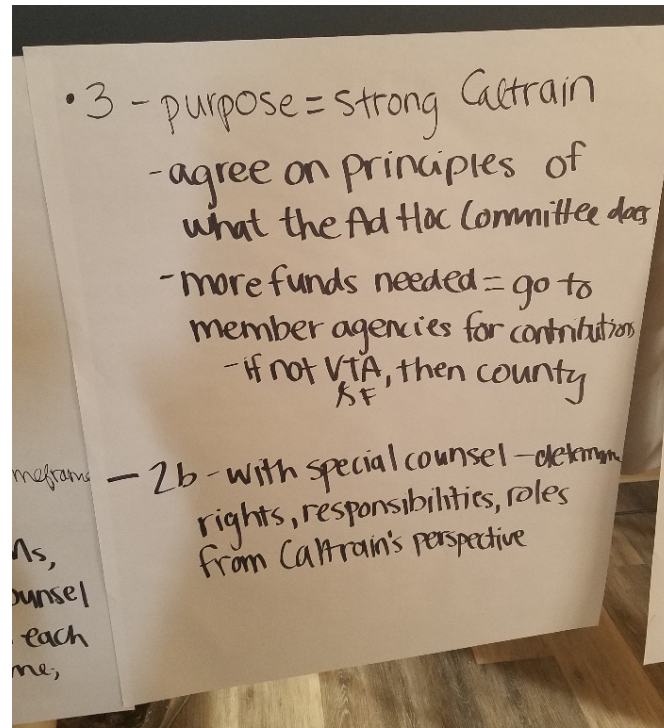 • 3 - purpose = strong Caltrain
- agree on principles of
what the Ad Hoc Committee does
- more funds needed = go to
member agencies for contributions
- if not VTA, then county
SF
meframe
- 2b - with special counsel - determ
rights, responsibilities, roles
from Caltrain's perspective
ounsel
each
me,